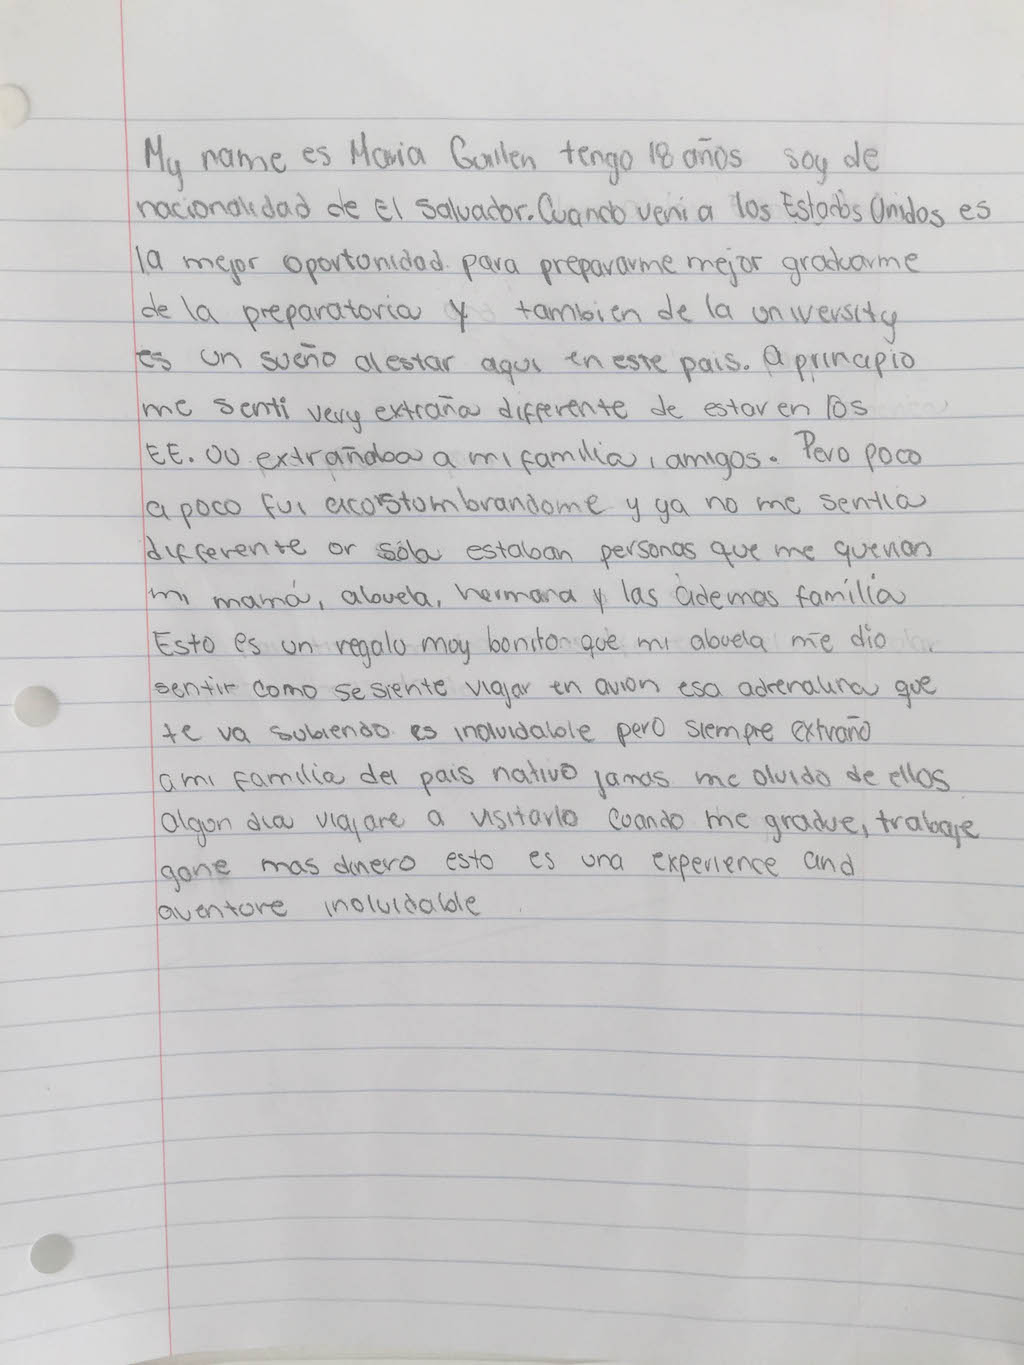 My name es Maria Guillen tengo 18 años soy de
nacionalidad de El Salvador. Cuando veni a los Estados Unidos es
la mejor oportunidad para prepararme mejor graduarme
de la preparatoria y tambien de la university
es un sueño al estar aqui en este pais. A principio
me senti very extraña differente de estar en los
EE. UU extrañaba a mi familia, amigos. Pero poco
a poco fui acostumbrandome y ya no me sentia
differente or sola estaban personas que me querian
mi mamá, abuela, hermana y las ademas familia
Esto es un regalo muy bonito que mi abuela me dio
sentir como se siente viajar en avion esa adrenalina que
te va subiendo es inoluidable pero siempre extraño
a mi familia del pais nativo jamas me oluido de ellos
algun dia viajare a visitarlo cuando me gradue, trabaje
gane mas dinero esto es una experience and
aventure inoluidable